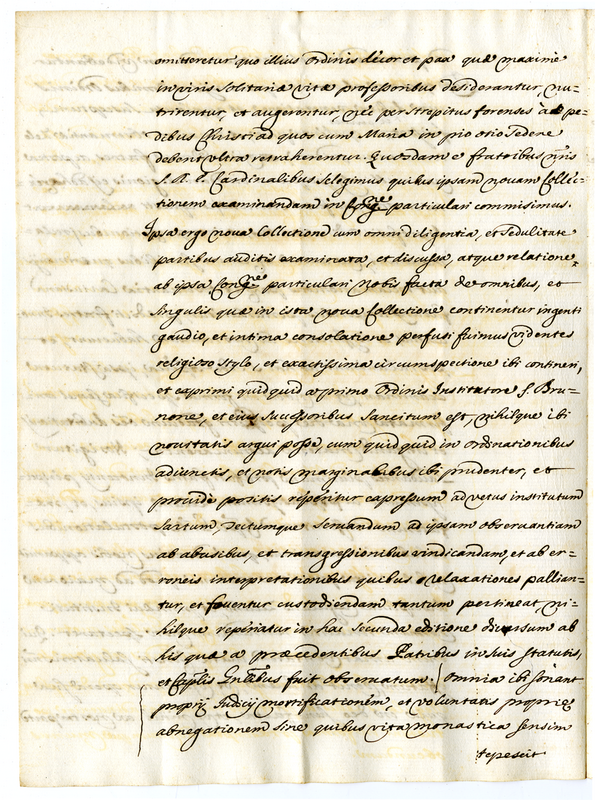 omitteretur quo illius Ordinis decor et pax quæ maxime
in viris solitariæ vitæ professoribus desiderantur, nu=
trirentur, et augerentur, nec per strepitus forenses à pe=
dibus Christi ad quos cum Maria in pio otio sedere
debent ultra retraherentur. Quosdam è fratribus nr̃is
S. R. E. Cardinalibus selegimus quibus ipsam novam Collec=
tionem examinandam in Congne particulari commisimus.
Ipsa ergo nova Collectione cum omni diligentia, et sedulitate
partibus auditis examinata, et discussa, atque relatione
ab ipsa Congne particulari Nobis facta de omnibus, et
singulis quæ in ista nova Collectione continentur ingenti
gaudio, et intima consolatione perfusi fuimus videntes
religioso stylo, et exactissima circumspectione ibi contineri,
et exprimi quidquid a primo Ordinis Institutore S. Bru=
none, et eius successoribus sancitum est, nihilque ibi
novitatis argui posse, cum quidquid in ordinationibus
adiunctis, et notis marginalibus ibi prudenter, et
provide positis reperitur expressum ad vetus institutum
sartum, tectumque servandum ad ipsam observantiam
ab abusibus, et transgressionibus vindicandam, et ab er=
roneis interpretationibus quibus relaxationes pallian=
tur, et foventur custodiendam tantum pertineat ni=
hilque reperiatur in hac secunda editione diversum ab
his quæ a præcedentibus Patribus in suis statutis,
et Caplis Gñlibus fuit observatum. Omnia ibi sonant
proprij Iudicij mortificationem, et voluntatis propriæ
abnegationem sine quibus vita monastica sensim
tepescit